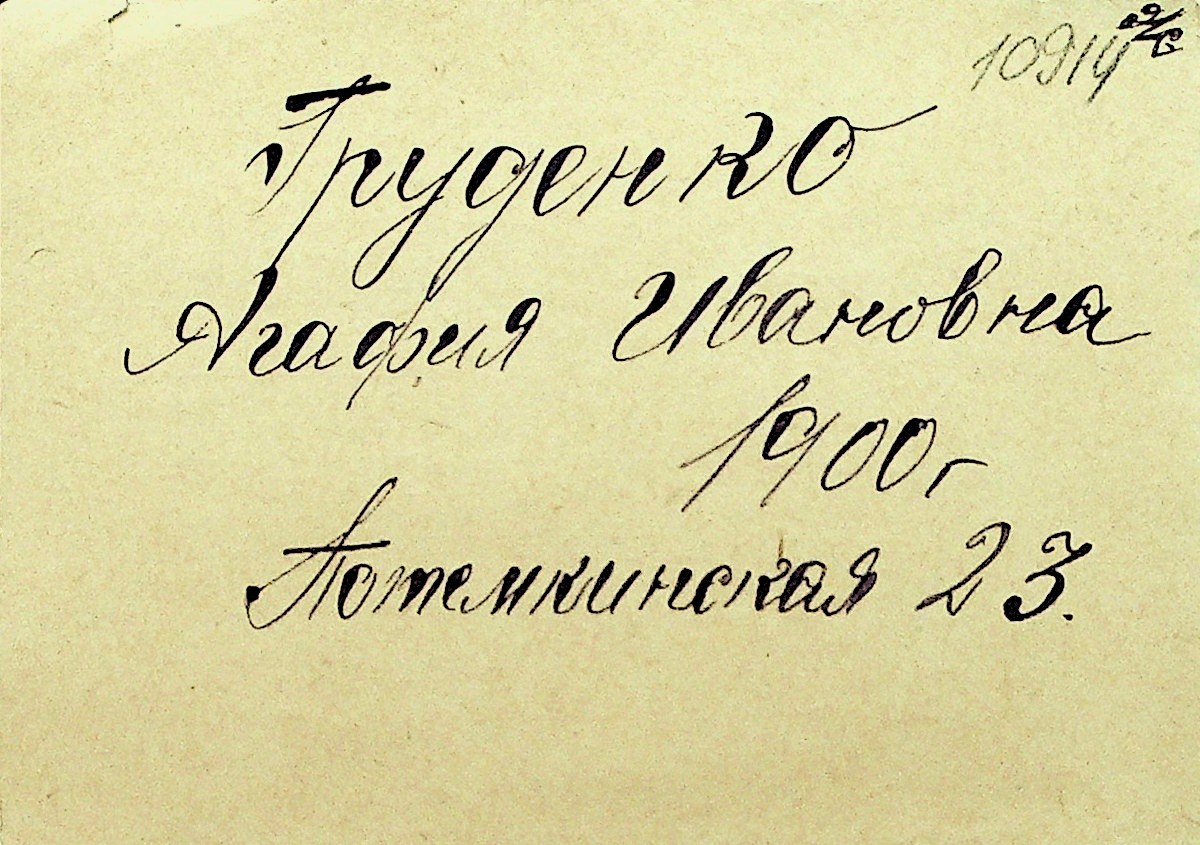 10914
Груденко
Агафия Ивановна
1900 г
Потемкинская 23.